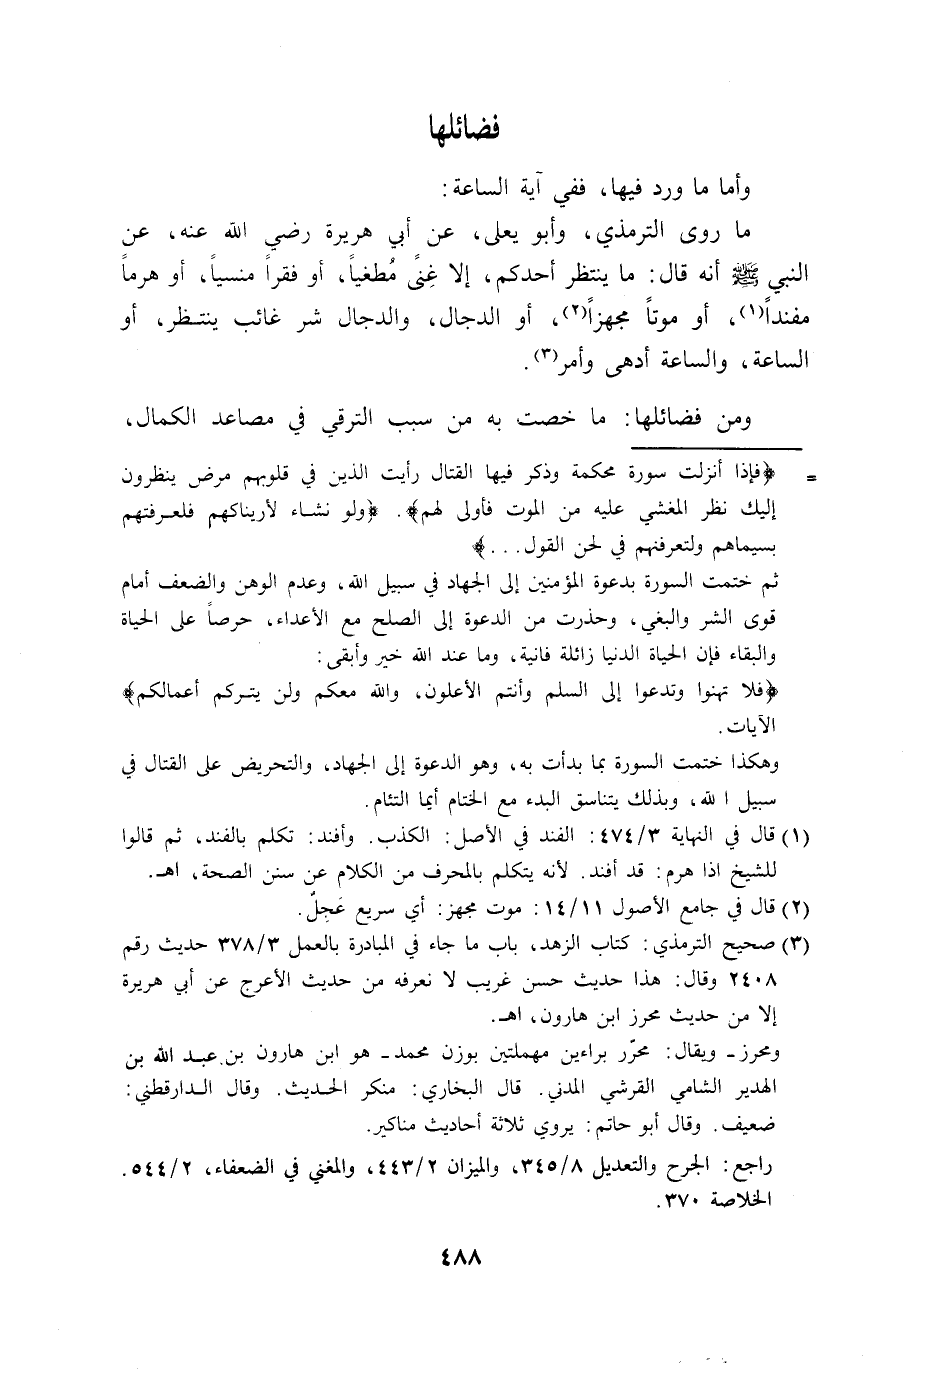 فضائلها
وأما ما ورد فيها، ففي آية الساعة:
ما روى الترمذي، وأبو يعلى، عن أبي هريرة رضي الله عنه، عن
النبي ﷺ أنه قال: ما ينتظر أحدكم، إلا غِنىً مُطغياً، أو فقراً منسياً، أو هرماً
مفنداً(١)، أو موتاً مجهزاً(٢)، أو الدجال، والدجال شر غائب ينتـظر، أو
الساعة، والساعة أدهى وأمر(٣).
ومن فضائلها: ما خصت به من سبب الترقي في مصاعد الكمال،
= ﴿فإذا أنزلت سورة محكمة وذكر فيها القتال رأيت الذين في قلوبهم مرض ينظرون
إليك نظر المغشي عليه من الموت فأولى لهم﴾. ﴿ولو نشـاء لأريناكهم فلعـرفتهم
بسيماهم ولتعرفنهم في لحن القول...﴾
ثم ختمت السورة بدعوة المؤمنين إلى الجهاد في سبيل الله، وعدم الوهن والضعف أمام
قوى الشر والبغي، وحذرت من الدعوة إلى الصلح مع الأعداء، حرصاً على الحياة
والبقاء فإن الحياة الدنيا زائلة فانية، وما عند الله خير وأبقى:
﴿فلا تهنوا وتدعوا إلى السلم وأنتم الأعلون، والله معكم ولن يتـركم أعمالكم﴾
الآيات.
وهكذا ختمت السورة بما بدأت به، وهو الدعوة إلى الجهاد، والتحريض على القتال في
سبيل ا لله، وبذلك يتناسق البدء مع الختام أيما التئام.
(١) قال في النهاية ٤٧٤/٣: الفند في الأصل: الكذب. وأفند: تكلم بالفند، ثم قالوا
للشيخ اذا هرم: قد أفند. لأنه يتكلم بالمحرف من الكلام عن سنن الصحة، اهـ.
(٢) قال في جامع الأصول ١٤/١١: موت مجهز: أي سريع عَجِلٌ.
(٣) صحيح الترمذي: كتاب الزهد، باب ما جاء في المبادرة بالعمل ٣٧٨/٣ حديث رقم
٢٤٠٨ وقال: هذا حديث حسن غريب لا نعرفه من حديث الأعرج عن أبي هريرة
إلا من حديث محرز ابن هارون، اهـ.
ومحرز ـ ويقال: محرّر براءين مهملتين بوزن محمد ـ هو ابن هارون بن عبـد الله بن
الهدير الشامي القرشي المدني. قال البخاري: منكر الحـديث. وقال الـدارقطني:
ضعيف. وقال أبو حاتم: يروي ثلاثة أحاديث مناكير.
راجع: الجرح والتعديل ٣٤٥/٨، والميزان ٤٤٣/٢، والمغني في الضعفاء، ٥٤٤/٢.
الخلاصة ٣٧٠.
٤٨٨